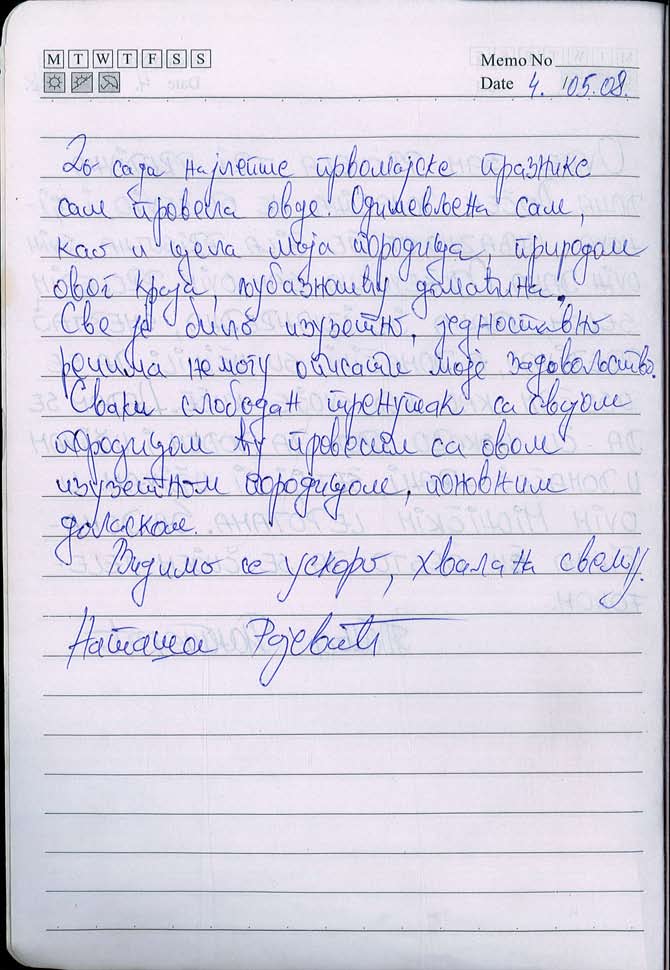 M T W T F S S
Memo No
Date 4. 05.08.
До сада најлепше првомајске празнике
сам провела овде. Одушевљена сам,
као и цела моја породица, природом
овог краја, љубазношћу домаћина.
Све је било изузетно, једноставно
речима не могу описати моје задовољство.
Сваки слободан тренутак са својом
породицом ћу провести са овом
изузетном породицом, поновним
доласком.
Видимо се ускоро, хвала на свему.
Наташа